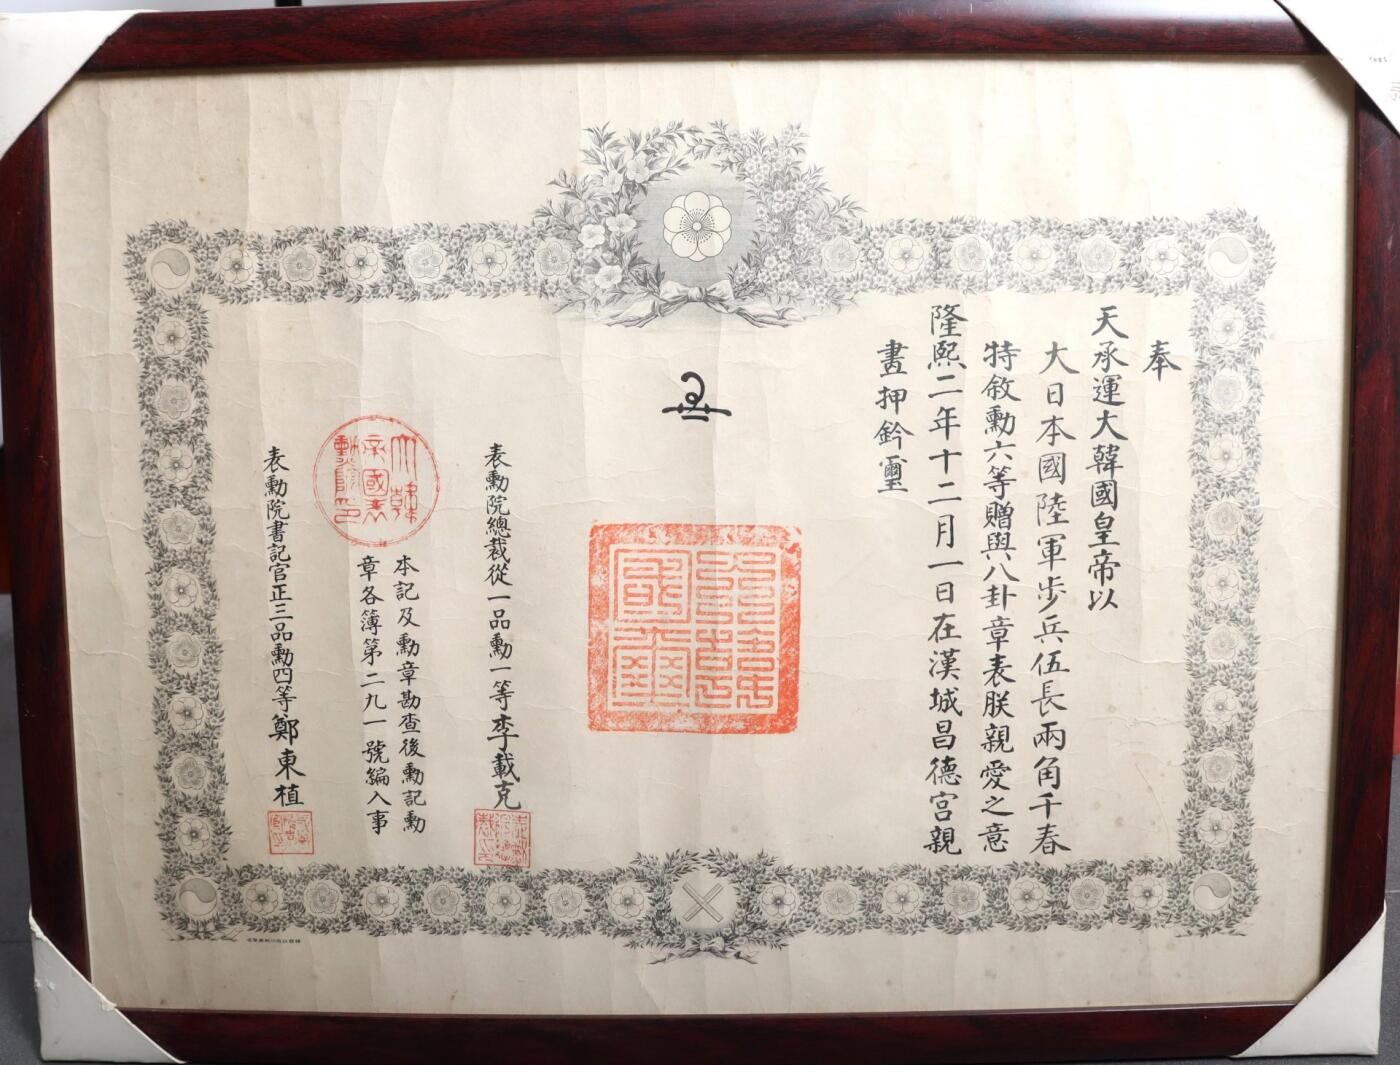 奉
天承運大韓國皇帝以
大日本國陸軍步兵伍長兩角千春
特敘勳六等贈與八卦章表朕親愛之意
隆熙二年十二月一日在漢城昌德宮親
畫押鈐璽
表勳院總裁從一品勳一等李載克
大韓
帝國表
勳院印
本記及勳章勘查後勳記勳
章各簿第二九一號編入事
表勳院書記官正三品勳四等鄭東植